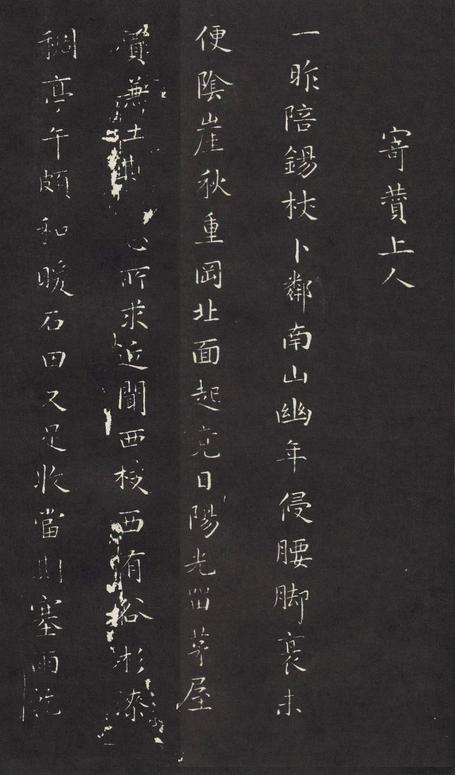 寄贊上人
一昨陪錫杖卜鄰南山幽年侵腰脚衰未
便陰崖秋重岡北面起竟日陽光留茅屋
買兼土斯心所求近聞西枝西有谷杉漆
稠亭午頗和暖石田又足收當期塞雨乾